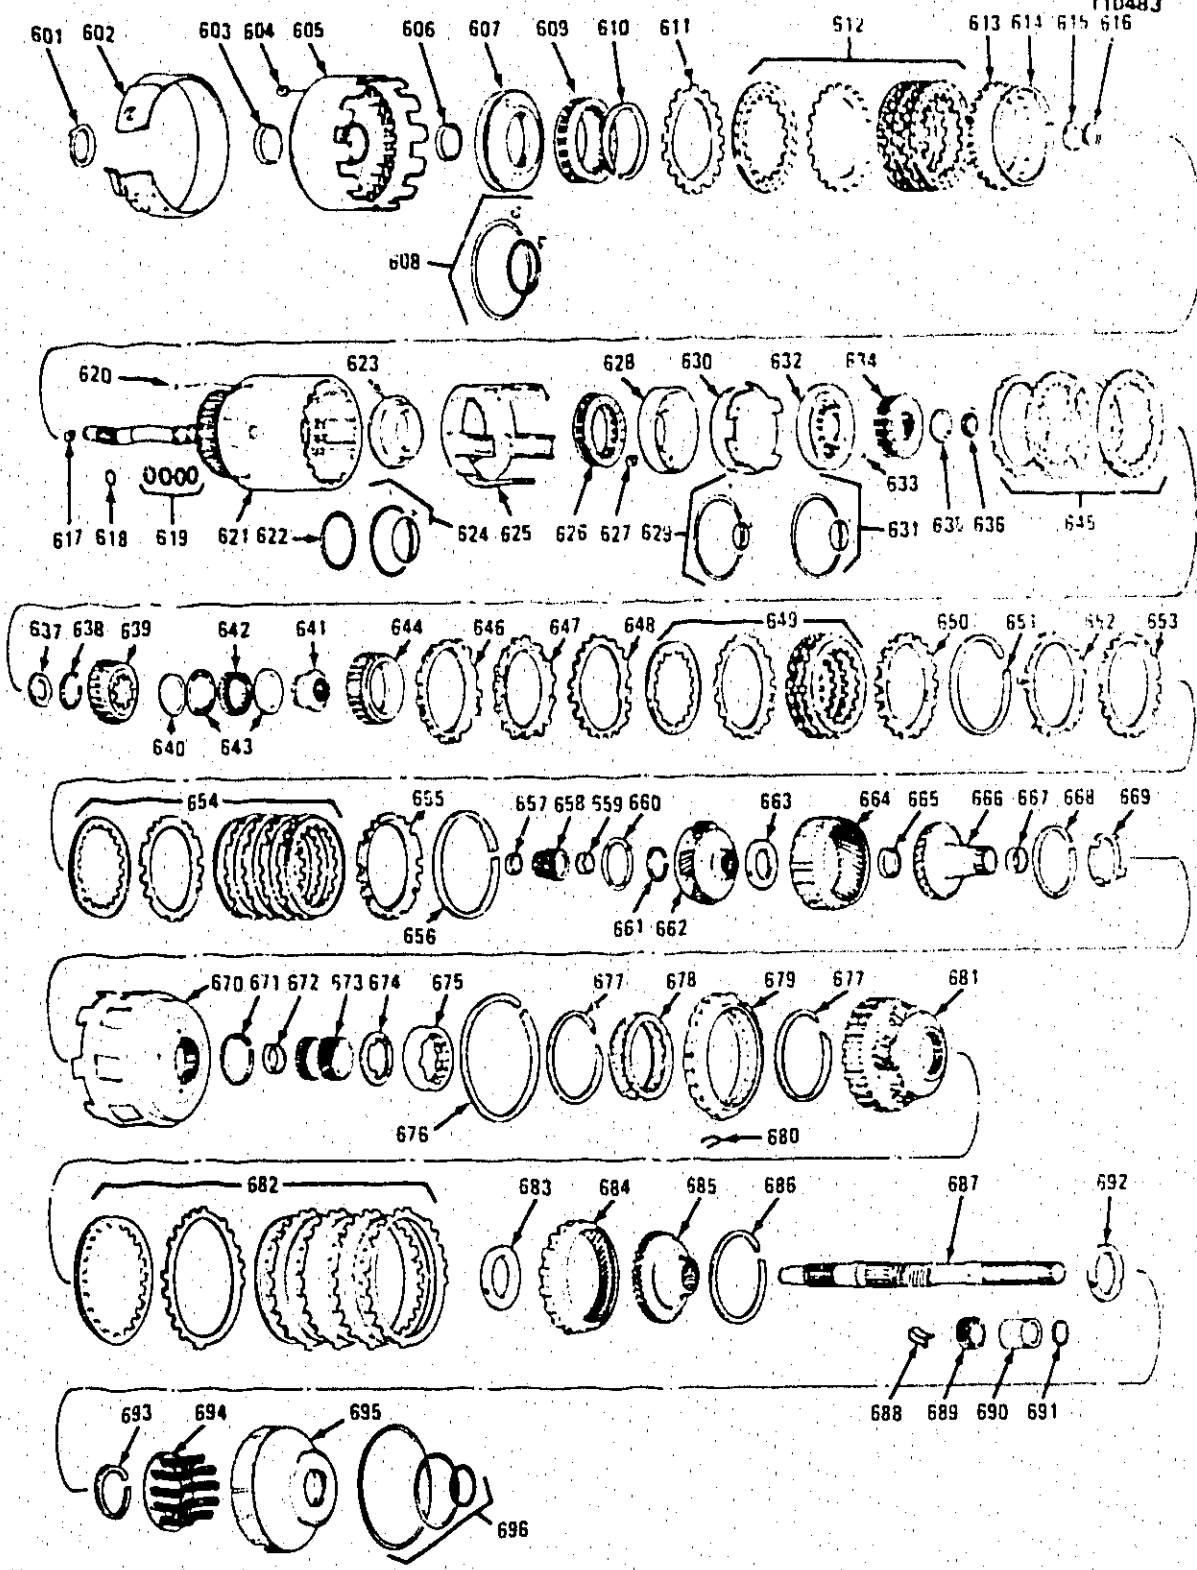 T10483
601 602 603 604 605 606 607 609 610 611 612 613 614 615 616
608
620 623 628 630 632 634
633
617 618 619 621 622 624 625 626 627 629 631 635 636 645
637 638 639 642 641 644 646 647 648 649 650 651 652 653
640 643
654 655 657 658 659 660 663 664 665 666 667 668 669
656 661 662
670 671 672 673 674 675 677 678 679 677 681
676 680
682 683 684 685 686 687 692
688 689 690 691
693 694 695
696